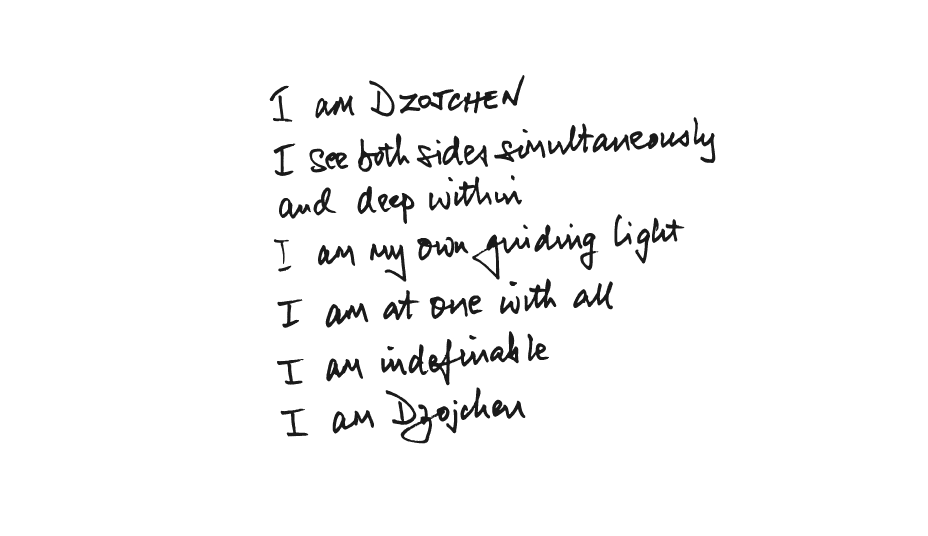 I am DZOJCHEN
I see both sides simultaneously
and deep within
I am my own guiding light
I am at one with all
I am indefinable
I am Dzojchen